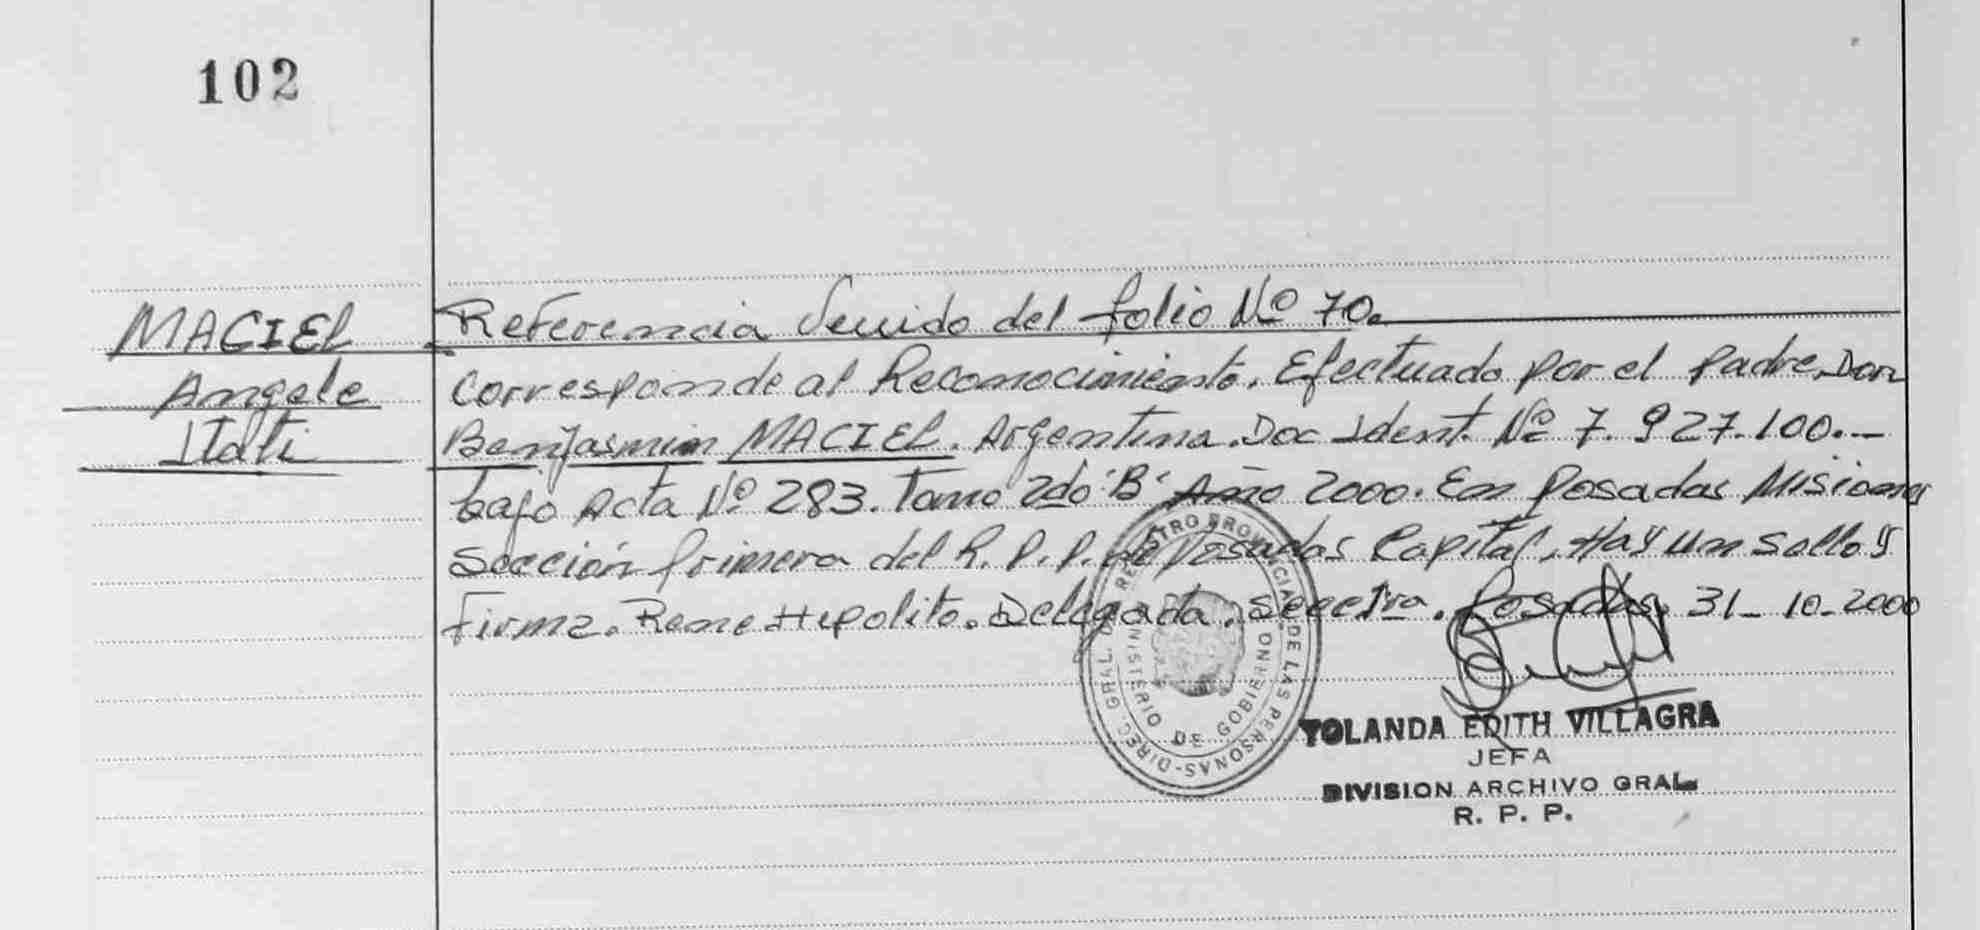 102
MACIEL
Angele
Itati
Referencia Venido del folio Nº 70.
Corresponde al Reconocimiento. Efectuado por el padre, Don
Benjasmin MACIEL. Argentina. Doc Ident. Nº 7.927.100.—
bajo Acta Nº 283. Tomo 2do "B" Año 2000. En Posadas Misiones
Sección Primera del R. P. P. de Posadas Capital. Hay un Sello y
Firma. Rene Hipolito. Delegada. Posadas, 31-10-2000
REGISTRO PROVINCIAL DE LAS PERSONAS-DIREC. GRAL. DEL
MINISTERIO DE GOBIERNO
YOLANDA EDITH VILLAGRA
JEFA
DIVISION ARCHIVO GRAL.
R. P. P.